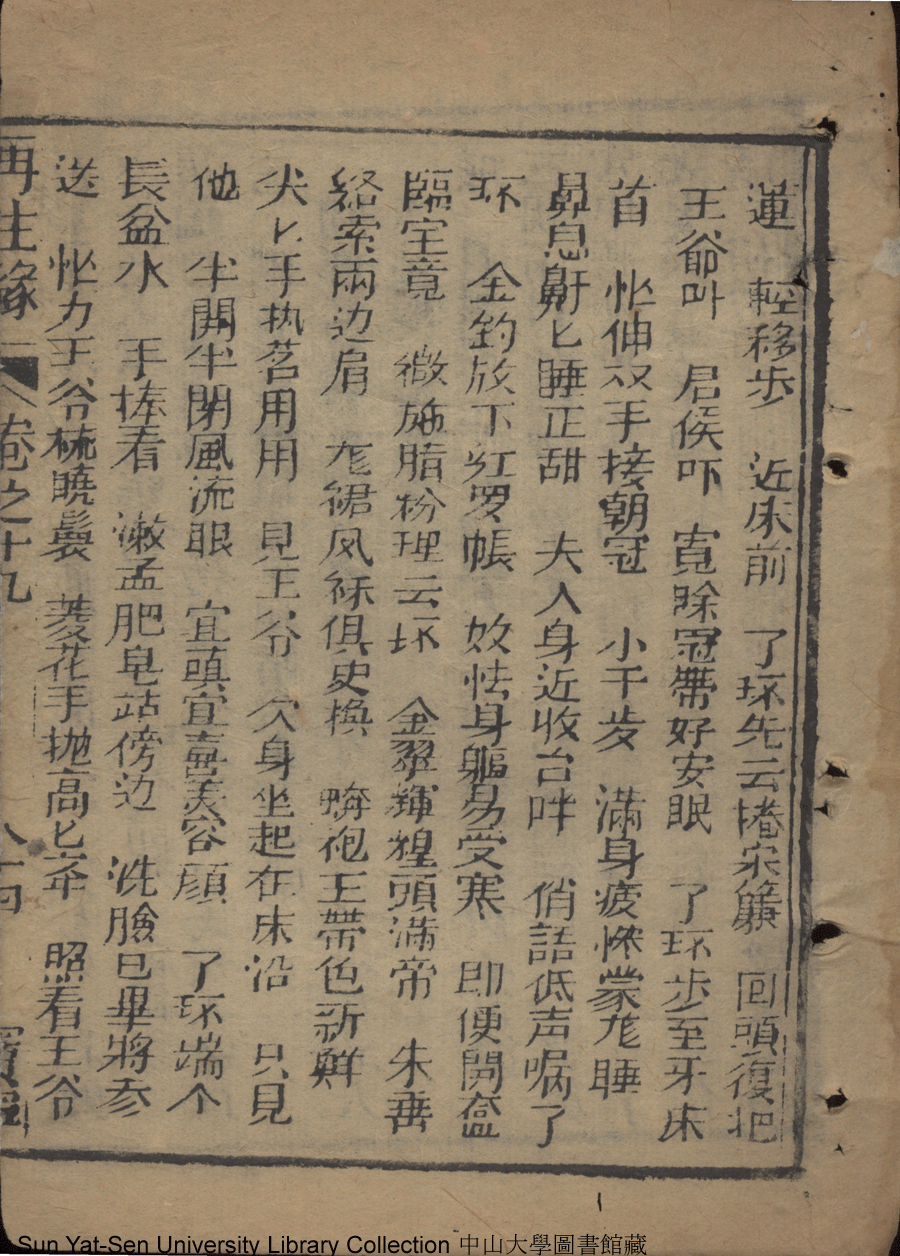 蓮 輕移步 近床前 了环先云捲宋簾 回頭復把
王爺叫 君侯吓 寬除冠帶好安眠 了环步至牙床
首 忙伸双手接朝冠 小干歩 滿身疲惓蒙尨睡
鼻息鼾匕睡正甜 夫人身近收台畔 俏語低声嘱了
环 金鈎放下红罗帳 奴怯身軀易受寒 即便開奩
臨宝竟 微施脂粉理云环 金翠輝煌頭滿帝 朱垂
絡索兩边肩 尨裙凤袄俱史換 蟒袍王帶色新鮮
尖匕手执茗用用 見王爷 欠身坐起在床沿 只見
他 半開半閉風流眼 宜嗔宜喜美容顔 了环端个
長盆水 手捧看 漱盂肥皂站傍边 洗臉已畢將参
送 忙力王爷梳曉鬟 菱花手抛高匕卒 照看王爷
再生緣 卷之十九 八十四
Sun Yat-Sen University Library Collection 中山大學圖書館藏